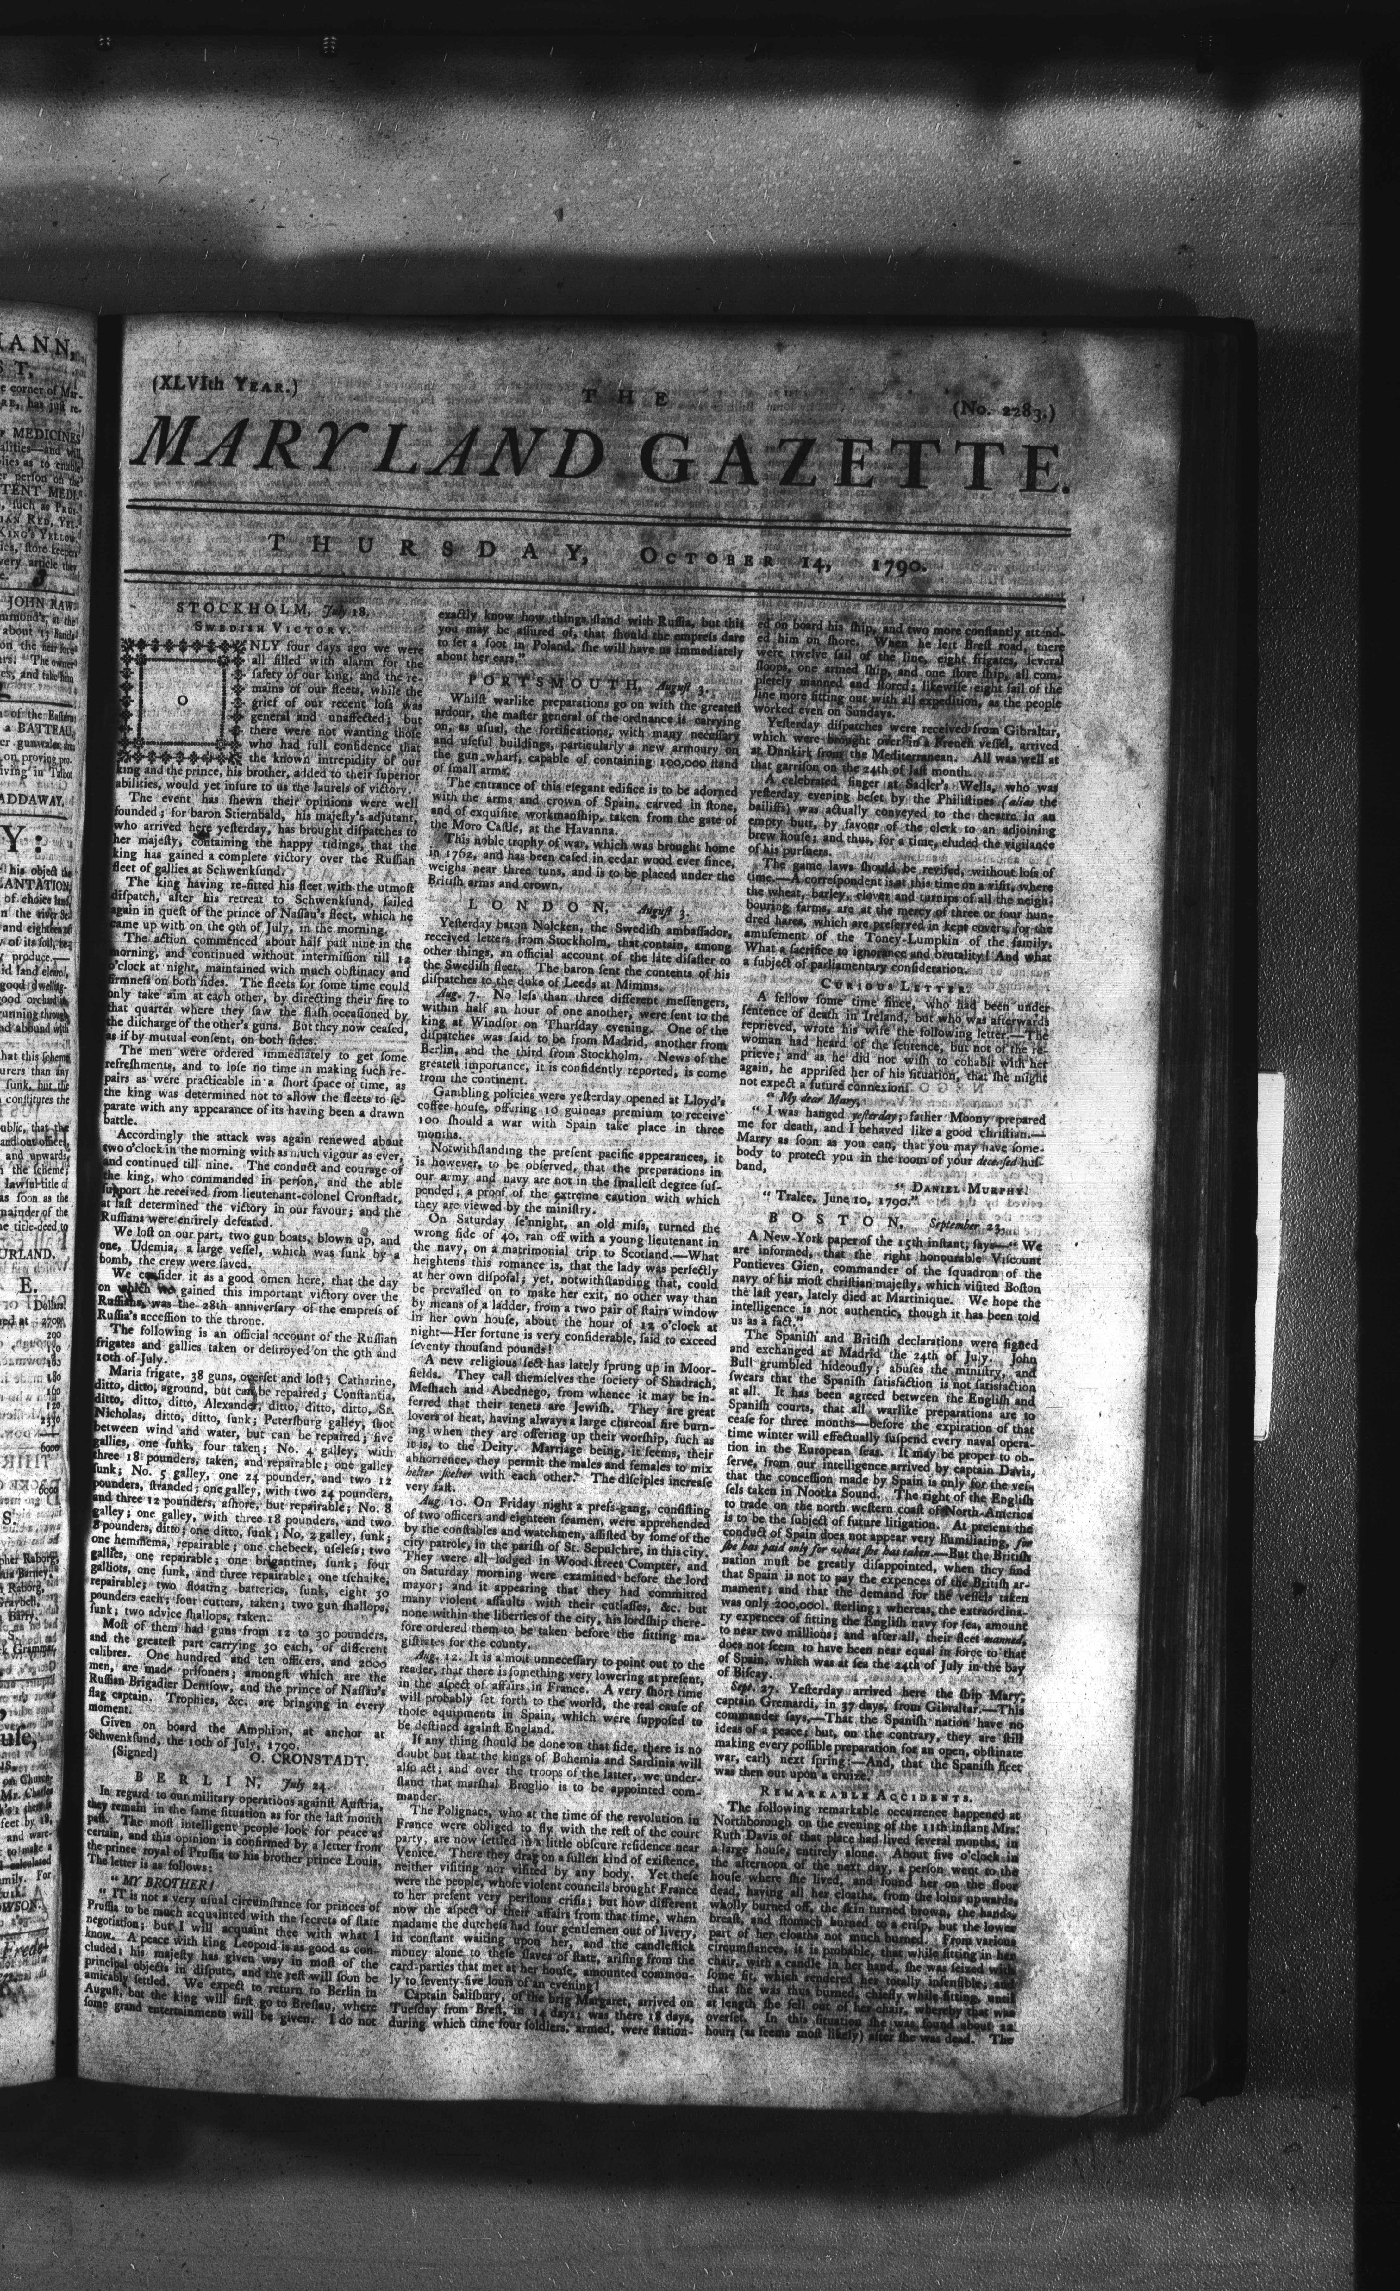 (XLVIth YEAR.)
THE
(No. 2283.)
MARYLAND GAZETTE.
THURSDAY, OCTOBER 14, 1790.
STOCKHOLM, July 18.
SWEDISH VICTORY.
ONLY four days ago we were
all filled with alarm for the
safety of our king; and the re-
mains of our fleets, while the
grief of our recent loſs was
general and unaffected; but
there were not wanting thoſe
who had full confidence that
the known intrepidity of our
king and the prince, his brother, added to their ſuperior
abilities, would yet inſure to us the laurels of victory.
The event has ſhewn their opinions were well
founded; for baron Stiernbald, his majeſty's adjutant,
who arrived here yeſterday, has brought diſpatches to
her majeſty, containing the happy tidings, that the
king has gained a complete victory over the Ruſſian
fleet of gallies at Schwenkſund.
The king having re-fitted his fleet with the utmoſt
diſpatch, after his retreat to Schwenkſund, ſailed
again in queſt of the prince of Naſſau's fleet, which he
came up with on the 9th of July, in the morning.
The action commenced about half paſt nine in the
morning, and continued without intermiſſion till 12
o'clock at night, maintained with much obſtinacy and
firmneſs on both ſides. The fleets for ſome time could
only take aim at each other, by directing their fire to
that quarter where they ſaw the flaſh occaſioned by
the diſcharge of the other's guns. But they now ceaſed,
as if by mutual conſent, on both ſides.
The men were ordered immediately to get ſome
refreſhments, and to loſe no time in making ſuch re-
pairs as were practicable in a ſhort ſpace of time, as
the king was determined not to allow the fleets to ſe-
parate with any appearance of its having been a drawn
battle.
Accordingly the attack was again renewed about
two o'clock in the morning with as much vigour as ever,
and continued till nine. The conduct and courage of
the king, who commanded in perſon, and the able
ſupport he received from lieutenant-colonel Cronſtadt,
at laſt determined the victory in our favour; and the
Ruſſians were entirely defeated.
We loſt on our part, two gun boats, blown up, and
one, Udemia, a large veſſel, which was ſunk by a
bomb, the crew were ſaved.
We conſider it as a good omen here, that the day
on which we gained this important victory over the
Ruſſians, was the 28th anniverſary of the empreſs of
Ruſſia's acceſſion to the throne.
The following is an official account of the Ruſſian
frigates and gallies taken or deſtroyed on the 9th and
10th of July.
Maria frigate, 38 guns, overſet and loſt; Catharine,
ditto, ditto, aground, but can be repaired; Conſtantia,
ditto, ditto, ditto, Alexander, ditto, ditto, ditto, St.
Nicholas, ditto, ditto, ſunk; Peterſburg galley, ſhot
between wind and water, but can be repaired; five
gallies, one ſunk, four taken; No. 4 galley, with
three 18 pounders, taken, and repairable; one galley
ſunk; No. 5 galley, one 24 pounder, and two 12
pounders, ſtranded; one galley, with two 24 pounders,
and three 12 pounders, aſhore, but repairable; No. 8
galley; one galley, with three 18 pounders, and two
8 pounders, ditto; one ditto, ſunk; No. 2 galley, ſunk;
one hemmema, repairable; one chebeck, uſeleſs; two
gallies, one repairable; one brigantine, ſunk; four
galliots, one ſunk, and three repairable; one tſchaike,
repairable; two floating batteries, ſunk, eight 30
pounders each; four cutters, taken; two gun ſhallops,
ſunk; two advice ſhallops, taken.
Moſt of them had guns from 12 to 30 pounders,
and the greateſt part carrying 30 each, of different
calibres. One hundred and ten officers, and 2000
men, are made priſoners; amongſt which are the
Ruſſian Brigadier Deniſow, and the prince of Naſſau's
flag captain. Trophies, &c. are bringing in every
moment.
Given on board the Amphion, at anchor at
Schwenkſund, the 10th of July, 1790.
(Signed) O. CRONSTADT.
BERLIN, July 24.
In regard to our military operations againſt Auſtria,
they remain in the ſame ſituation as for the laſt month
paſt. The moſt intelligent people look for peace as
certain, and this opinion is confirmed by a letter from
the prince royal of Pruſſia to his brother prince Louis.
The letter is as follows:
"MY BROTHER!
"IT is not a very uſual circumſtance for princes of
Pruſſia to be much acquainted with the ſecrets of ſtate
negotiation; but I will acquaint thee with what I
know. A peace with king Leopold is as good as con-
cluded; his majeſty has given way in moſt of the
principal objects in diſpute, and the reſt will ſoon be
amicably ſettled. We expect to return to Berlin in
Auguſt, but the king will firſt go to Breſlau, where
ſome grand entertainments will be given. I do not
exactly know how things ſtand with Ruſſia, but this
you may be aſſured of, that ſhould the empreſs dare
to ſet a foot in Poland, ſhe will have us immediately
about her ears."
PORTSMOUTH, Auguſt 3.
Whilſt warlike preparations go on with the greateſt
ardour, the maſter general of the ordnance is carrying
on, as uſual, the fortifications, with many neceſſary
and uſeful buildings, particularly a new armoury on
the gun wharf, capable of containing 100,000 ſtand
of ſmall arms.
The entrance of this elegant edifice is to be adorned
with the arms and crown of Spain, carved in ſtone,
and of exquiſite workmanſhip, taken from the gate of
the Moro Caſtle, at the Havanna.
This noble trophy of war, which was brought home
in 1762, and has been caſed in cedar wood ever ſince,
weighs near three tuns, and is to be placed under the
Britiſh arms and crown.
LONDON, Auguſt 3.
Yeſterday baron Nolcken, the Swediſh ambaſſador,
received letters from Stockholm, that contain, among
other things, an official account of the late diſaſter to
the Swediſh fleet. The baron ſent the contents of his
diſpatches to the duke of Leeds at Mimms.
Aug. 7. No leſs than three different meſſengers,
within half an hour of one another, were ſent to the
king at Windſor on Thurſday evening. One of the
diſpatches was ſaid to be from Madrid, another from
Berlin, and the third from Stockholm. News of the
greateſt importance, it is confidently reported, is come
from the continent.
Gambling policies were yeſterday opened at Lloyd's
coffee-houſe, offering 10 guineas premium to receive
100 ſhould a war with Spain take place in three
months.
Notwithſtanding the preſent pacific appearances, it
is however, to be obſerved, that the preparations in
our army and navy are not in the ſmalleſt degree ſuſ-
pended; a proof of the extreme caution with which
they are viewed by the miniſtry.
On Saturday ſe'nnight, an old miſs, turned the
wrong ſide of 40, ran off with a young lieutenant in
the navy, on a matrimonial trip to Scotland.—What
heightens this romance is, that the lady was perfectly
at her own diſpoſal; yet, notwithſtanding that, could
be prevailed on to make her exit, no other way than
by means of a ladder, from a two pair of ſtairs window
in her own houſe, about the hour of 12 o'clock at
night—Her fortune is very conſiderable, ſaid to exceed
ſeventy thouſand pounds!
A new religious ſect has lately ſprung up in Moor-
fields. They call themſelves the ſociety of Shadrach,
Meſhach and Abednego, from whence it may be in-
ferred that their tenets are Jewiſh. They are great
lovers of heat, having always a large charcoal fire burn-
ing when they are offering up their worſhip, ſuch as
it is, to the Deity. Marriage being, it ſeems, their
abhorrence, they permit the males and females to mix
helter ſkelter with each other. The diſciples increaſe
very faſt.
Aug. 10. On Friday night a preſs-gang, conſiſting
of two officers and eighteen ſeamen, were apprehended
by the conſtables and watchmen, aſſiſted by ſome of the
city patrole, in the pariſh of St. Sepulchre, in this city.
They were all lodged in Wood-ſtreet Compter, and
on Saturday morning were examined before the lord
mayor; and it appearing that they had committed
many violent aſſaults with their cutlaſſes, &c. but
none within the liberties of the city, his lordſhip there-
fore ordered them to be taken before the ſitting ma-
giſtrates for the county.
Aug. 12. It is almoſt unneceſſary to point out to the
reader, that there is ſomething very lowering at preſent,
in the aſpect of affairs in France. A very ſhort time
will probably ſet forth to the world, the real cauſe of
thoſe equipments in Spain, which were ſuppoſed to
be deſtined againſt England.
If any thing ſhould be done on that ſide, there is no
doubt but that the kings of Bohemia and Sardinia will
alſo act; and over the troops of the latter, we under-
ſtand that marſhal Broglio is to be appointed com-
mander.
The Polignacs, who at the time of the revolution in
France were obliged to fly with the reſt of the court
party, are now ſettled in a little obſcure reſidence near
Venice. There they drag on a ſullen kind of exiſtence,
neither viſiting nor viſited by any body. Yet theſe
were the people, whoſe violent councils brought France
to her preſent very perilous criſis; but how different
now the aſpect of their affairs from that time, when
madame the dutcheſs had four gentlemen out of livery,
in conſtant waiting upon her, and the candleſtick
money alone to theſe ſlaves of ſtate, ariſing from the
card-parties that met at her houſe, amounted common-
ly to ſeventy-five louis of an evening!
Captain Saliſbury, of the brig Margaret, arrived on
Tueſday from Breſt, in 14 days; was there 18 days,
during which time four ſoldiers, armed, were ſtation-
ed on board his ſhip, and two more conſtantly attend-
ed him on ſhore. When he left Breſt road, there
were twelve ſail of the line, eight frigates, ſeveral
ſloops, one armed ſhip, and one ſtore ſhip, all com-
pletely manned and ſtored; likewiſe eight ſail of the
line more fitting out with all expedition, as the people
worked even on Sundays.
Yeſterday diſpatches were received from Gibraltar,
which were brought over in a French veſſel, arrived
at Dunkirk from the Mediterranean. All was well at
that garriſon on the 24th of laſt month.
A celebrated ſinger at Sadler's Wells, who was
yeſterday evening beſet by the Philiſtines (alias the
bailiffs) was actually conveyed to the theatre in an
empty butt, by favour of the clerk to an adjoining
brew houſe; and thus, for a time, eluded the vigilance
of his purſuers.
The game laws ſhould be reviſed, without loſs of
time.—A correſpondent is at this time on a viſit, where
the wheat, barley, clover and turnips of all the neigh-
bouring farms, are at the mercy of three or four hun-
dred hares, which are preſerved in kept covers, for the
amuſement of the Toney-Lumpkin of the family.
What a ſacrifice to ignorance and brutality! And what
a ſubject of parliamentary conſideration.
CURIOUS LETTER.
A fellow ſome time ſince, who had been under
ſentence of death in Ireland, but who was afterwards
reprieved, wrote his wife the following letter—The
woman had heard of the ſentence, but not of the re-
prieve; and as he did not wiſh to cohabit with her
again, he appriſed her of his ſituation, that ſhe might
not expect a future connexion.
"My dear Mary,
"I was hanged yeſterday; father Moony prepared
me for death, and I behaved like a good chriſtian.—
Marry as ſoon as you can, that you may have ſome-
body to protect you in the room of your deceaſed huſ-
band,
"DANIEL MURPHY.
"Tralee, June 10, 1790."
BOSTON, September 23.
A New-York paper of the 15th inſtant, ſays—"We
are informed, that the right honourable Viſcount
Pontieves Gien, commander of the ſquadron of the
navy of his moſt chriſtian majeſty, which viſited Boſton
the laſt year, lately died at Martinique. We hope the
intelligence is not authentic, though it has been told
us as a fact."
The Spaniſh and Britiſh declarations were ſigned
and exchanged at Madrid the 24th of July. John
Bull grumbled hideouſly; abuſes the miniſtry, and
ſwears that the Spaniſh ſatisfaction is not ſatisfaction
at all. It has been agreed between the Engliſh and
Spaniſh courts, that all warlike preparations are to
ceaſe for three months—before the expiration of that
time winter will effectually ſuſpend every naval opera-
tion in the European ſeas. It may be proper to ob-
ſerve, from our intelligence arrived by captain Davis,
that the conceſſion made by Spain is only for the veſ-
ſels taken in Nootka Sound. The right of the Engliſh
to trade on the north weſtern coaſt of North-America
is to be the ſubject of future litigation. At preſent the
conduct of Spain does not appear very humiliating, for
ſhe has paid only for what ſhe has taken.—But the Britiſh
nation muſt be greatly diſappointed, when they find
that Spain is not to pay the expences of the Britiſh ar-
mament; and that the demand for the veſſels taken
was only 200,000l. ſterling; whereas, the extraordina-
ry expences of fitting the Engliſh navy for ſea, amount
to near two millions; and after all, their fleet manned,
does not ſeem to have been near equal in force to that
of Spain, which was at ſea the 24th of July in the bay
of Biſcay.
Sept. 27. Yeſterday arrived here the ſhip Mary,
captain Gremardi, in 37 days, from Gibraltar.—This
commander ſays,—That the Spaniſh nation have no
ideas of a peace; but, on the contrary, they are ſtill
making every poſſible preparation for an open, obſtinate
war, early next ſpring:—And, that the Spaniſh fleet
was then out upon a cruize.
REMARKABLE ACCIDENTS.
The following remarkable occurrence happened at
Northborough on the evening of the 11th inſtant. Mrs.
Ruth Davis of that place had lived ſeveral months, in
a large houſe, entirely alone. About five o'clock in
the afternoon of the next day, a perſon went to the
houſe where ſhe lived, and found her on the floor
dead, having all her cloaths, from the loins upwards,
wholly burned off, the ſkin turned brown, the hands,
breaſt, and ſtomach burned to a criſp, but the lower
part of her cloaths not much burned. From various
circumſtances, it is probable, that while ſitting in her
chair, with a candle in her hand, ſhe was ſeized with
ſome fit, which rendered her totally inſenſible; and
that ſhe was thus burned, chiefly while ſitting, until
at length ſhe fell out of her chair, whereby that was
overſet. In this ſituation ſhe was found about 22
hours (as ſeems moſt likely) after ſhe was dead. The